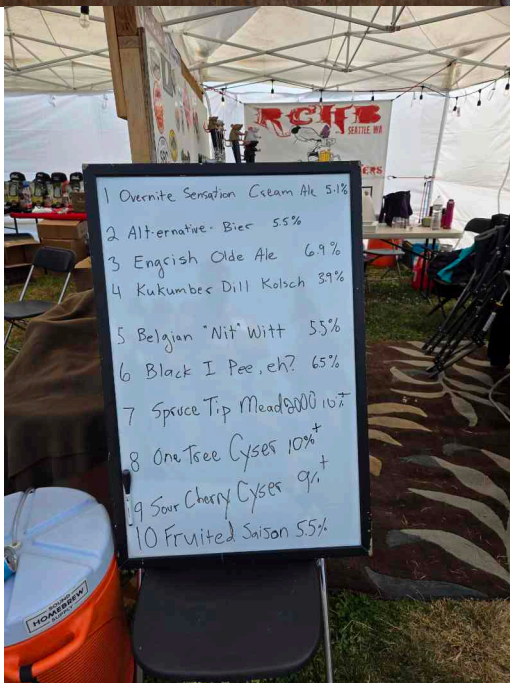 RCHB
SEATTLE, WA
ERS
1 Overnite Sensation Cream Ale 5.1%
2 Alt.ernative. Bier 5.5%
3 Engrish Olde Ale 6.9%
4 Kukumber Dill Kolsch 3.9%
5 Belgian "Nit" Witt 5.5%
6 Black I Pee, eh? 6.5%
7 Spruce Tip Mead 10%
8 One Tree Cyser 10%+
9 Sour Cherry Cyser 9%+
10 Fruited Saison 5.5%
SOUND
HOMEBREW
SUPPLY